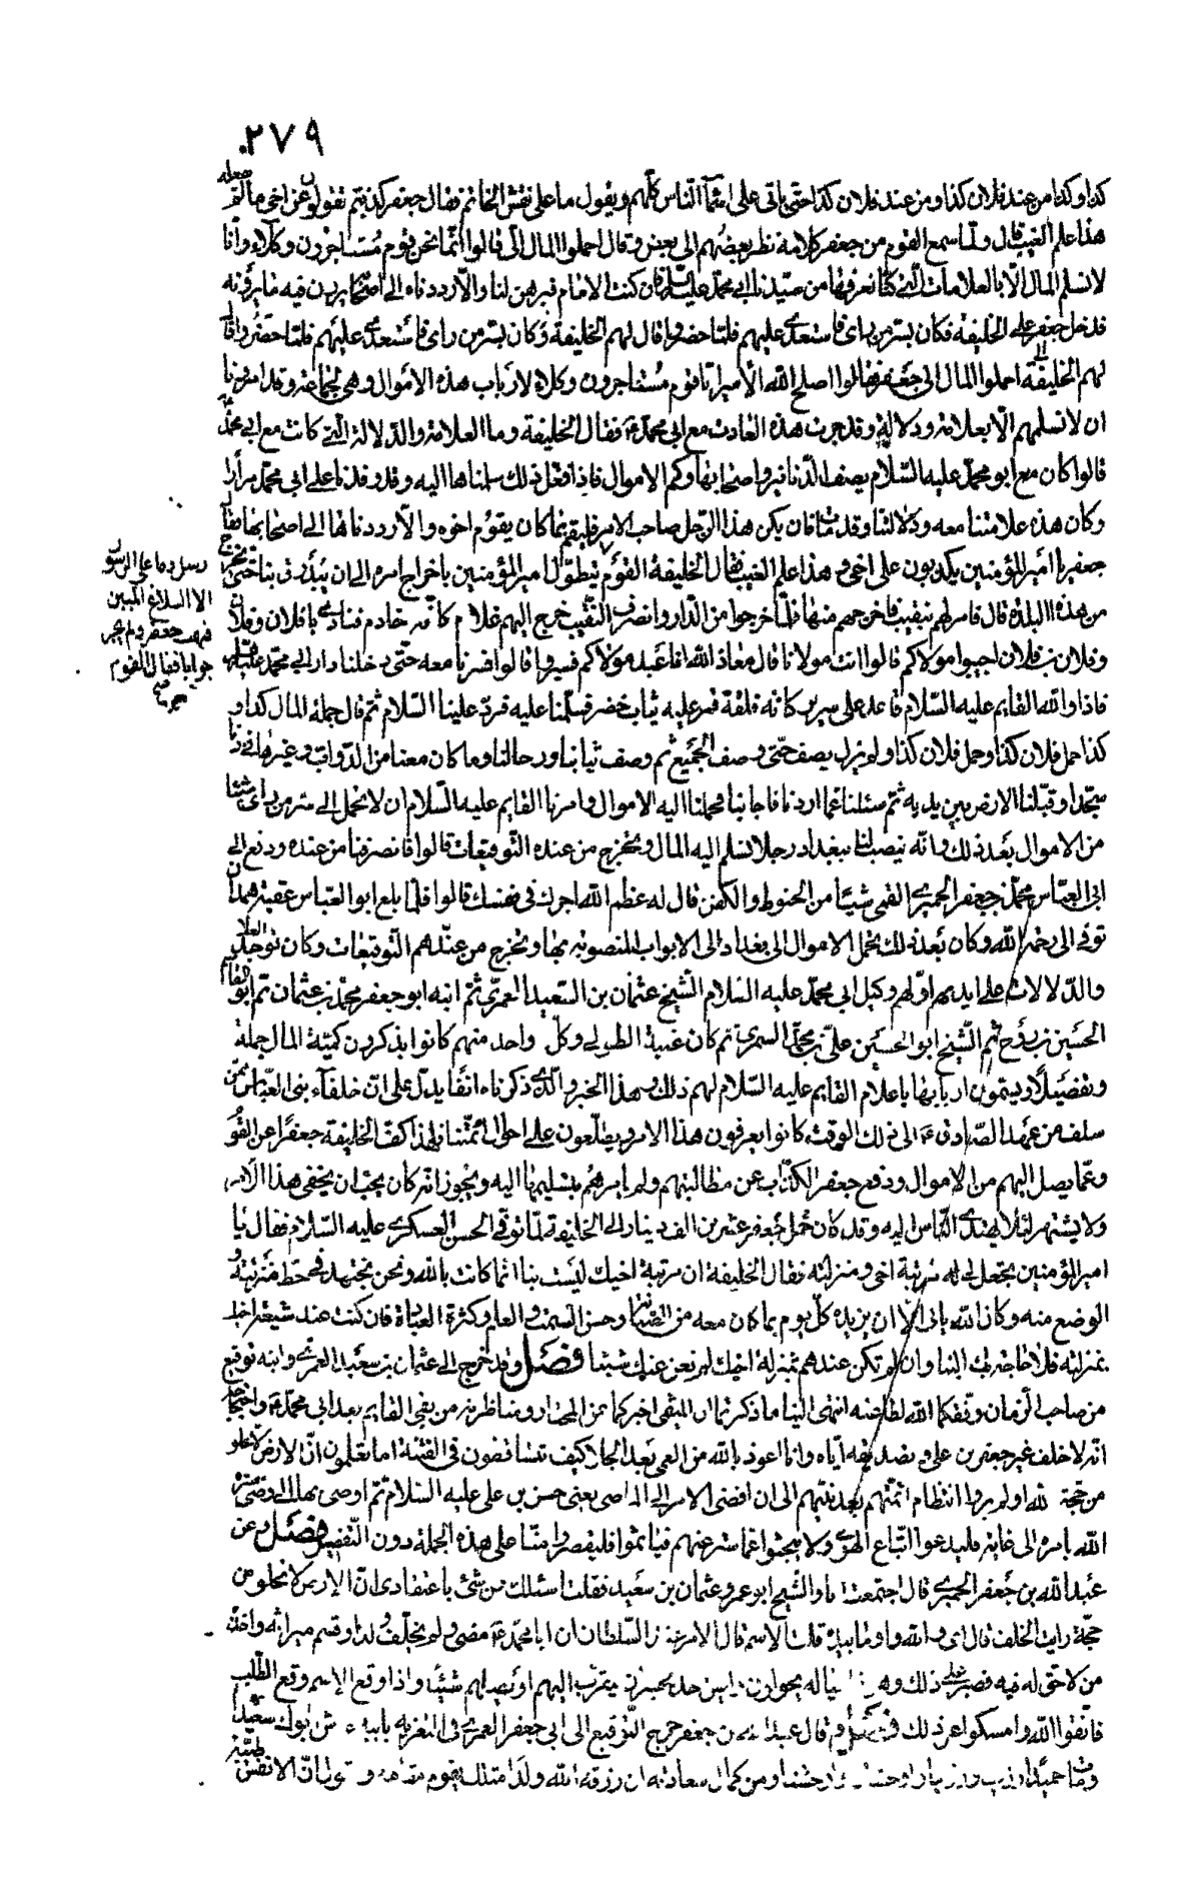 ۲۷۹
كذا وكذا من عند فلان كذا ومن عند فلان كذا حتى ياتى على اسماء الناس كلهم ويقول ما على نقش الخاتم فقال جعفر كذبتم تقولون عن اخى ما لم يفعله
هذا علم الغيب قال ولما سمع القوم من جعفر كلامه نظر بعضهم الى بعض وقال احملوا المال الى قالوا انما نحن قوم مستاجرون وكلاء وانا
لا نسلم المال الا بالعلامات التى كنا نعرفها من سيدنا ابى محمد عليه السلم فان كنت الامام فبرهن لنا والا رددناه الى اصحابه يرون فيه ما يرونه
فدخل جعفر على الخليفة فكان بسر من راى فاستعدى عليهم فلما حضروا قال لهم الخليفة وكان بسر من راى فاستعدى عليهم فلما حضروا قال
لهم الخليفة احملوا المال الى جعفر فقالوا اصلح الله الامير انا قوم مستاجرون وكلاء لارباب هذه الاموال وهى لجماعة وقد امرونا
ان لا نسلمهم الا بعلامة ودلالة وقد جرت هذه العادة مع ابى محمد ع فقال الخليفة وما العلامة والدلالة التى كانت مع ابى محمد
قالوا كان مع ابو محمد عليه السلام يصف الدنانير واصحابها وكم الاموال فاذا فعل ذلك سلمناها اليه وقد وفدنا على ابى محمد مرارا
وكان هذه علامتنا معه ودلالتنا وقد مات فان يكن هذا الرجل صاحب الامر فليقم بما كان يقوم اخوه والا رددناها الى اصحابها فقال
جعفر يا امير المؤمنين يكذبون على اخى وهذا علم الغيب فقال الخليفة القوم تطول امير المؤمنين باخراج امره الى ان يبذرق بنا حتى نخرج
رسل وما على الرسول
الا البلاغ المبين
فبهت جعفر ولم يحر
جوابا فقال القوم
صح
من هذه البلدة قال فامر لهم بنقيب فاخرجهم منها فلما خرجوا من الدار وانصرف النقيب خرج اليهم غلام كانه خادم فنادى يا فلان وفلان
وفلان بن فلان اجيبوا مولاكم قالوا انت مولانا قال معاذ الله انا عبد مولاكم فسيروا قالوا فسرنا معه حتى دخلنا دار ابى محمد عليه السلم
فاذا والله القايم عليه السلام قاعد على سرير كانه فلقة قمر عليه ثياب خضر فسلمنا عليه فرد علينا السلام ثم قال جملة المال كذا و
كذا حمل فلان كذا وحمل فلان كذا ولم يزل يصف حتى وصف الجميع ثم وصف ثيابنا ورحالنا وما كان معنا من الدواب وغيرها فخررنا
سجدا وقبلنا الارض بين يديه ثم سئلنا عما اردنا فاجابنا فحملنا اليه الاموال وامرنا القايم عليه السلام ان لا نحمل الى سر من راى شيئا
من الاموال بعد ذلك وانه ينصب لنا ببغداد رجلا نسلم اليه المال وتخرج من عنده التوقيعات قالوا فانصرفنا من عنده ودفع الى
ابى العباس محمد بن جعفر الحميرى القمى شيئا من الحنوط والكفن قال له عظم الله اجرك فى نفسك قالوا فلما بلغ ابو العباس عقبة همدان
توفى الى رحمة الله وكان بعد ذلك نحمل الاموال الى بغداد الى الابواب المنصوبة بها وتخرج من عندهم التوقيعات وكان توجد العلا
والدلالات على ايديهم اولهم وكيل ابى محمد عليه السلام الشيخ عثمان بن السعيد العمرى ثم ابنه ابو جعفر محمد بن عثمان ثم ابو القاسم
الحسين بن روح ثم الشيخ ابو الحسين على بن محمد السمرى ثم كان غيبة الطولى وكل واحد منهم كانوا يذكرون كمية المال جملة
وتفصيلا ويسمون اربابها باعلام القايم عليه السلام لهم ذلك وهذا الخبر والذى ذكرناه انفا يدل على ان خلفاء بنى العباس ممن
سلف من عهد الصادق ع الى ذلك الوقت كانوا يعرفون هذا الامر ويطلعون على احوال ائمتنا فلهذا كف الخليفة جعفرا عن القوم
وعما يصل اليهم من الاموال ودفع جعفر الكذاب عن مطالبتهم ولم يامرهم بتسليمها اليه ويجوز انه كان يحب ان يخفى هذا الامر
ولا يشتهر لئلا يهتدى الناس اليه وقد كان حمل جعفر عشرين الف دينار الى الخليفة لما توفى الحسن العسكرى عليه السلام فقال يا
امير المؤمنين يجعل لى مرتبة اخى ومنزلته فقال الخليفة ان مرتبة اخيك ليست بنا انما كانت بالله ونحن نجتهد فى حط مرتبته و
الوضع منه وكان الله يابى الا ان يزيده كل يوم بما كان معه من الصيانة وحسن السمت والعلم وكثرة العبادة فان كنت عند شيعة اخيك
بمنزلته فلا حاجة بك الينا وان لم تكن عندهم بمنزلة اخيك لم نغن عنك شيئا فصل وقد خرج الى عثمان بن سعيد العمرى وابنه توقيع
من صاحب الزمان وفقكما الله لطاعته انتهى الينا ما ذكرتما ان الميثمى اخبركما عن المختار ومناظرته من لقى القايم بعد ابى محمد ع واحتجاجه
انه لا خلف غير جعفر بن على وتصديقه اياه وانا اعوذ بالله من العمى بعد الجلاء كيف تتساقطون فى الفتنة اما تعلمون ان الارض لا تخلو
من حجة لله اولم يروا انتظام ائمتهم بعد نبيهم الى ان افضى الامر الى الماضى يعنى حسن بن على عليه السلام ثم اوصى بها الى وصى ستره
الله بامره الى غايته فليدعوا اتباع الهوى ولا يبحثوا عما ستر عنهم فياثموا فليقصروا منا على هذه الجملة دون التفسير فصل وعن
عبد الله بن جعفر الحميرى قال اجتمعت انا والشيخ ابو عمرو عثمان بن سعيد فقلت اسئلك عن شئ باعتقادى ان الارض لا تخلو من
حجة رايت الخلف قال اى والله واوما بيده قلت الاسم قال الامر عند السلطان ان ابا محمد ع مضى ولم يخلف ولدا وقسم ميراثه واخذه
من لا حق له فيه فصبر على ذلك وهو ذا عياله يجولون ليس احد يجسر ان يتقرب اليهم او يصلهم شيئا واذا وقع الاسم وقع الطلب
فاتقوا الله وامسكوا عن ذلك فصل وقال عبد الله بن جعفر خرج التوقيع الى ابى جعفر العمرى فى التعزية بابيه عاش ابوك سعيدا
ومات حميدا ومن كمال سعادته ان رزقه الله ولدا مثلك يقوم مقامه فان الانفس طيبة